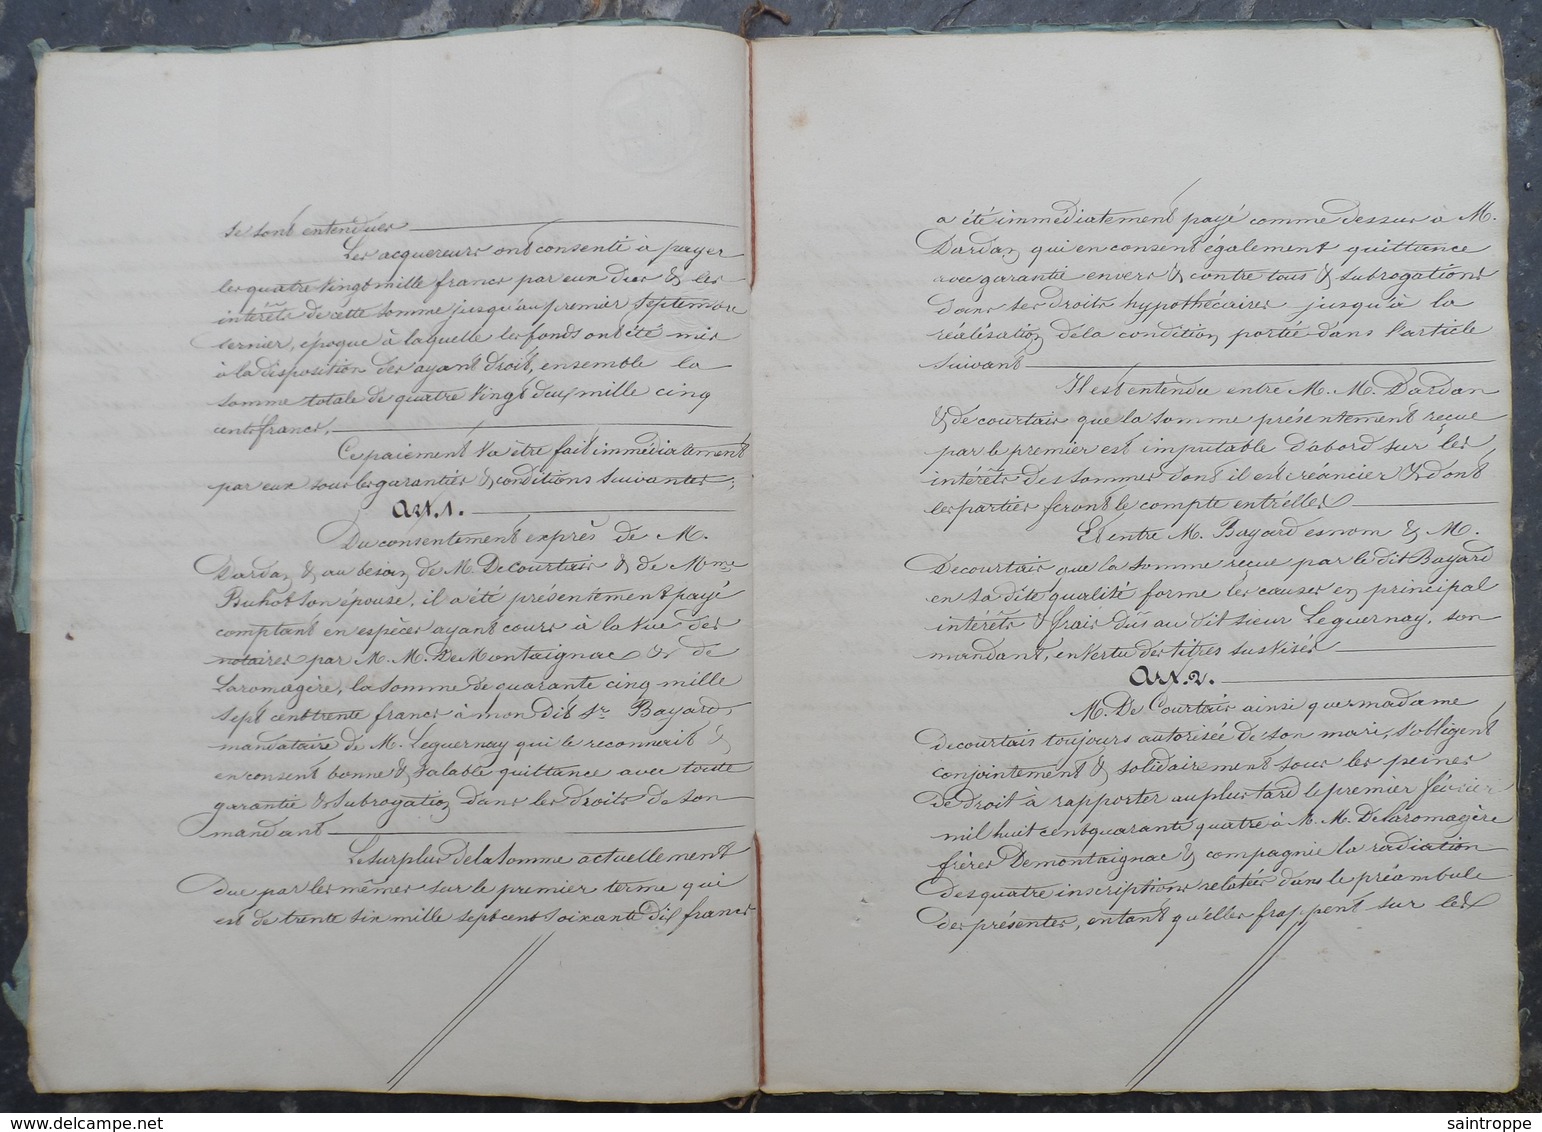 se sont entendues
Les acquereurs ont consenti à payer
les quatre vingt mille francs par eux dus & les
intérêts de cette somme jusqu'au premier Septembre
dernier, époque à laquelle les fonds ont été mis
à la disposition des ayant droit, ensemble la
somme totale de quatre vingt deux mille cinq
cents francs.
Ce paiement va être fait immédiatement
par eux sous les garanties & conditions suivantes;
Art. 1.
Du consentement exprès de M.
Dardan & au besoin de M. De Courtais & de Mme
Buhot son épouse, il a été présentement payé
comptant en espèces ayant cours à la vue des
notaires par M. M. De Montaignac & de
Laromagère, la somme de quarante cinq mille
sept cent trente francs à mon dit Sr. Bayard,
mandataire de M. Leguernay qui le reconnait &
en consent bonne & valable quittance avec toute
garantie & Subrogation dans les droits de son
mandant
Le surplus de la somme actuellement
due par les mêmes sur le premier terme qui
est de trente six mille sept cent soixante dix francs
a été immédiatement payé comme dessus à M.
Dardan qui en consent également quittance
avec garantie envers & contre tous & subrogations
dans ses droits hypothécaires jusqu'à la
réalisation de la condition portée dans l'article
suivant
Il est entendu entre M. M. Dardan
& de courtais que la somme présentement reçue
par le premier est imputable d'abord sur les
intérêts des sommes dont il est créancier & dont
les parties feront le compte entr'elles
Et entre M. Bayard es nom & M.
Decourtais que la somme reçue par le dit Bayard
en sa dite qualité forme les causes en principal
intérêts & frais dûs au dit sieur Leguernay, son
mandant, en vertu des titres susvisés
Art. 2.
M. De Courtais ainsi que madame
decourtais toujours autorisée de son mari, s'obligent
conjointement & solidairement sous les peines
de droit à rapporter au plus tard le premier février
mil huit cent quarante quatre à M. M. Delaromagère
frères Demontaignac & compagnie la radiation
des quatre inscriptions relatées dans le préambule
des présentes, en tant qu'elles frappent sur les
saintroppe
delcampe.net